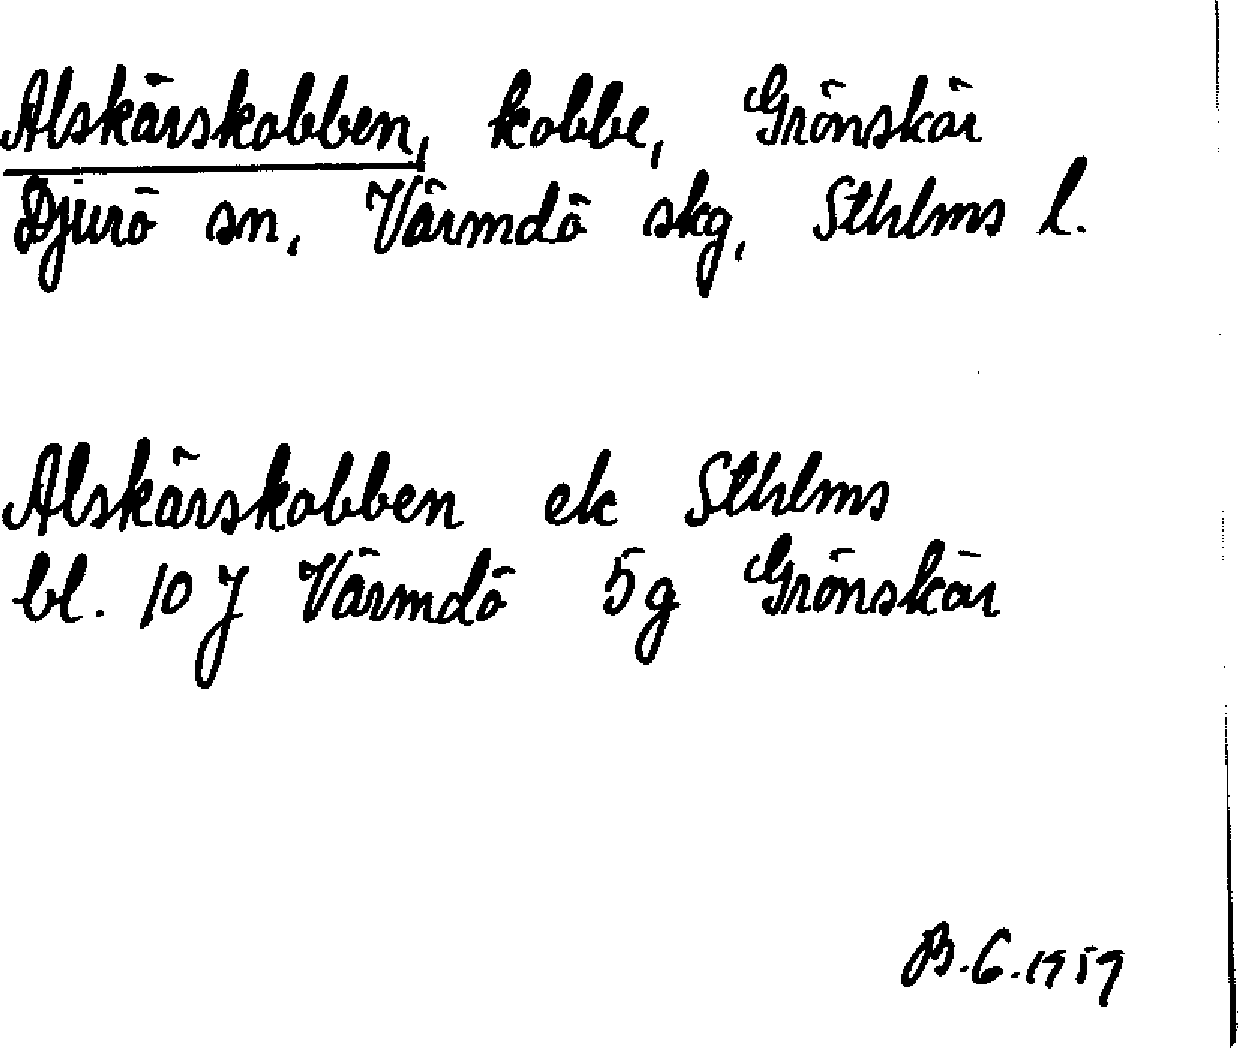 Alskärskobben, kobbe, Grönskär
Djurö sn, Värmdö skg, Sthlms l.
Alskärskobben ek Sthlms
bl. 10 J Värmdö 5g Grönskär
B.G. 1959